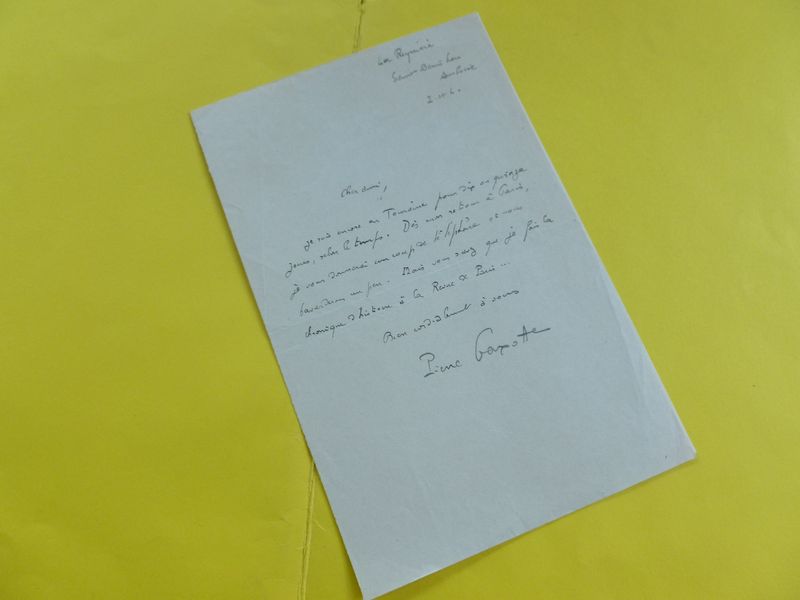 La Reynière
Saint
Amboise
Cher ami,
Je suis encore en Touraine pour dix ou quinze
jours, selon le temps. Dès mon retour à Paris,
je vous donnerai un coup de téléphone et nous
bavarderons un peu. Mais vous savez que je fais la
chronique d'histoire à la Revue de Paris...
Bien cordialement à vous
Pierre Gaxotte